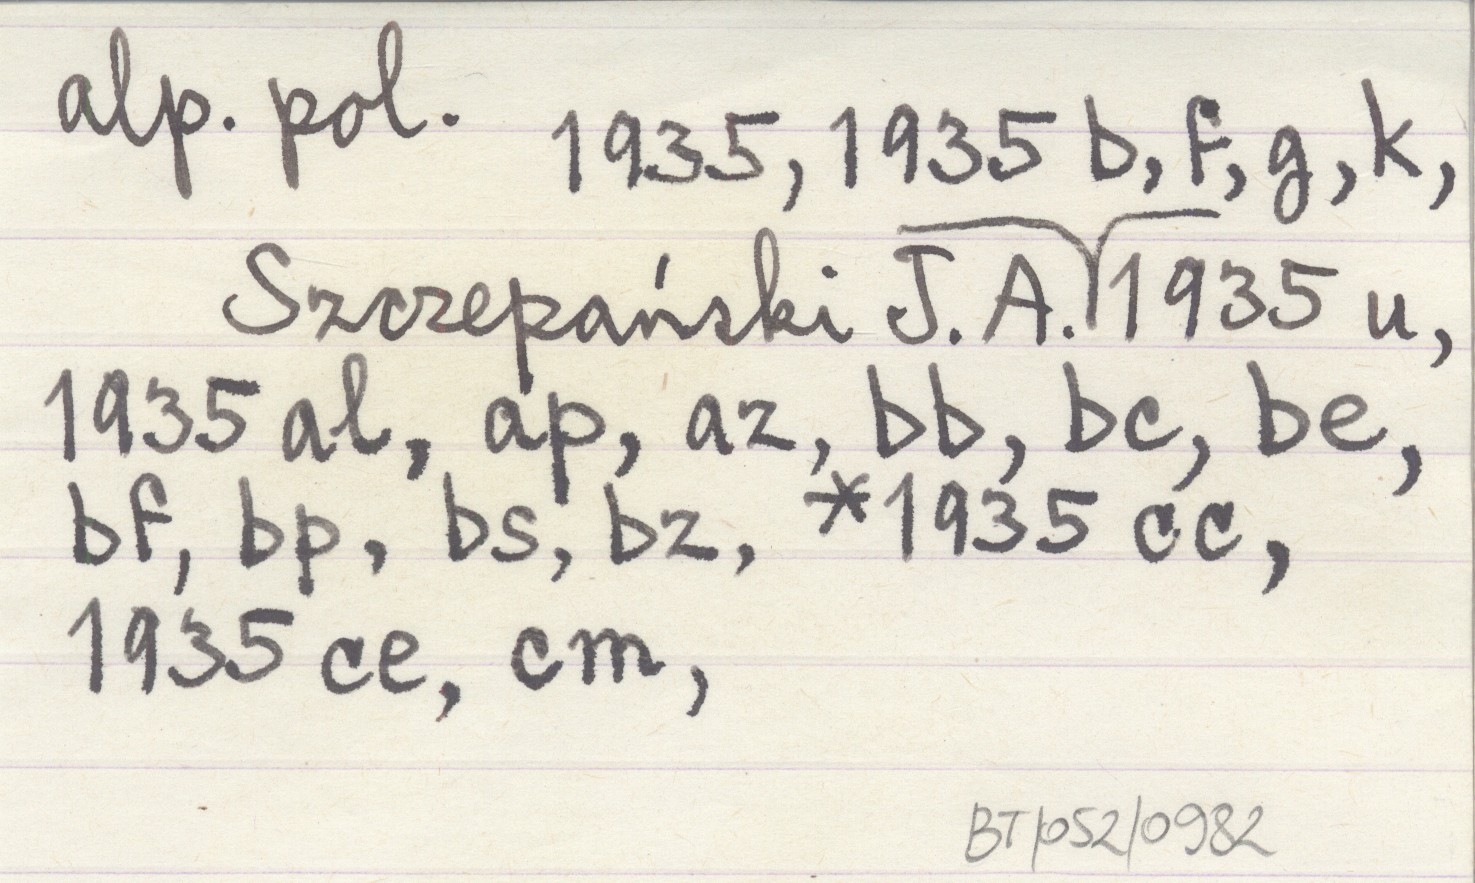 alp. pol. 1935, 1935 b, f, g, k,
Szczepański J. A. 1935 u,
1935 al, ap, az, bb, bc, be,
bf, bp, bs, bz, *1935 cc,
1935 ce, cm,
BT/052/0982